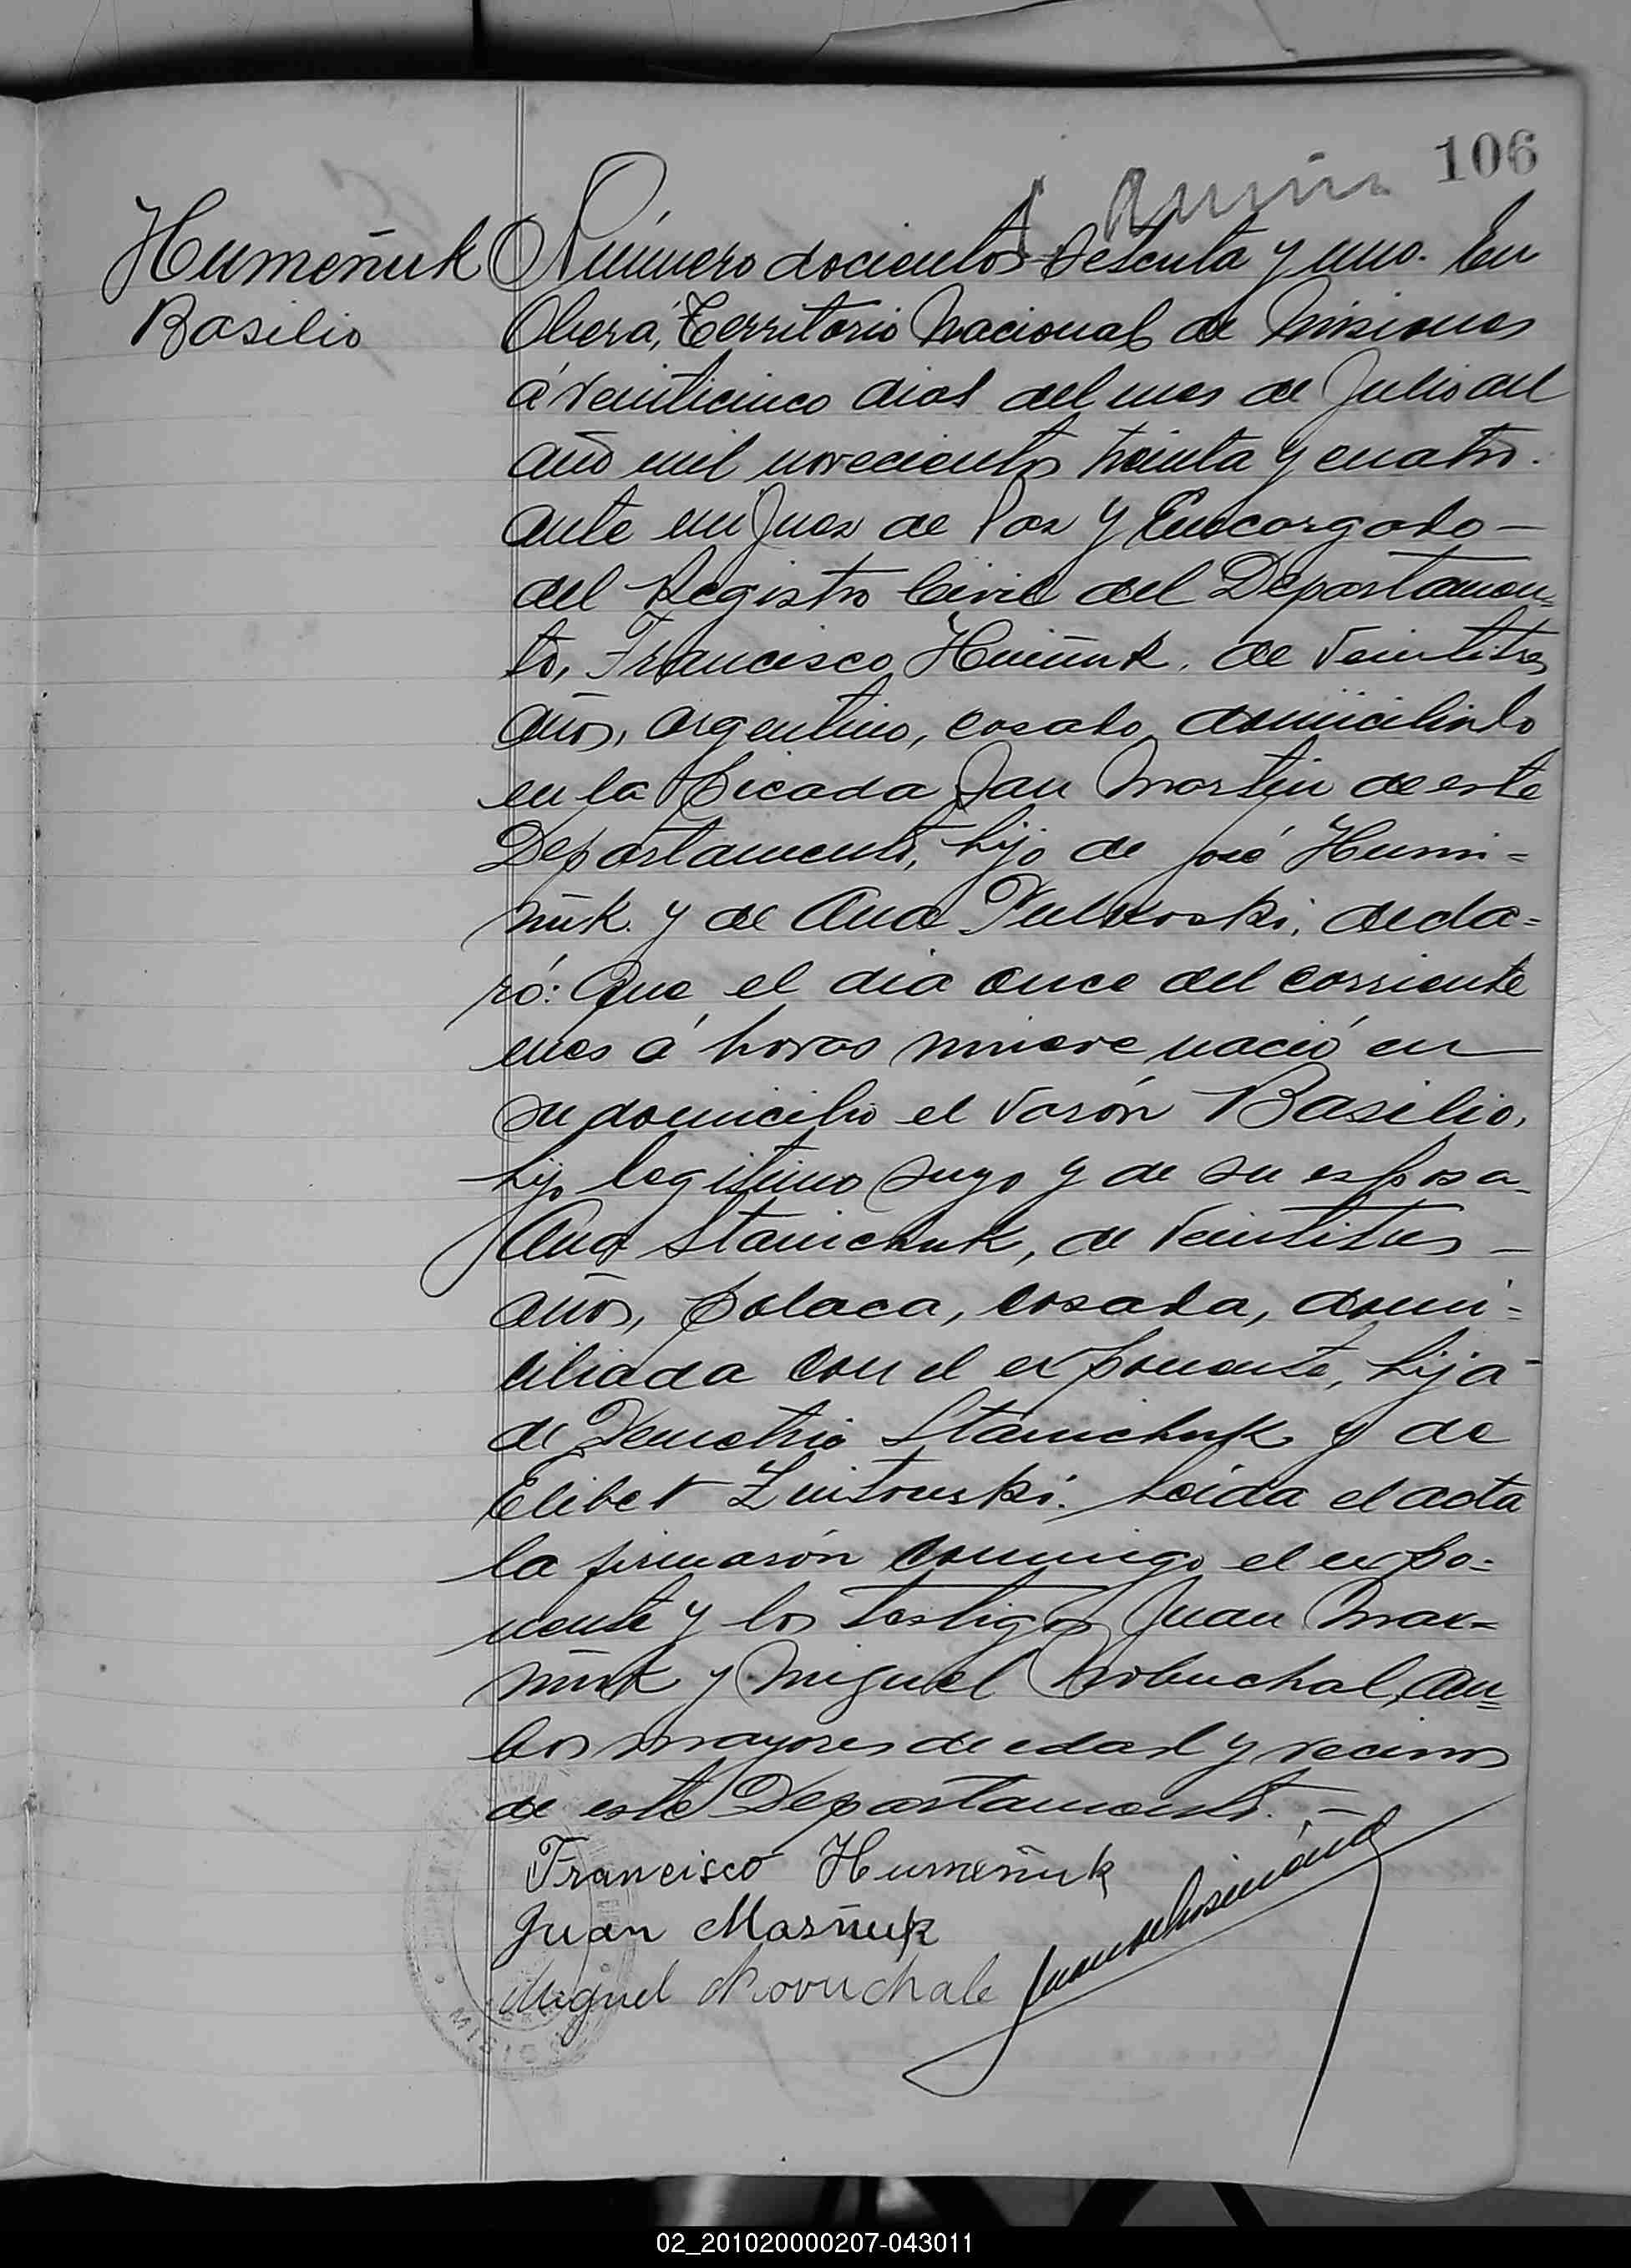 106
Humeñuk
Basilio
Número docientos setenta y uno. En
Oberá, Territorio Nacional de Misiones
á veinticinco dias del mes de Julio del
año mil novecientos treinta y cuatro.
ante mi Juez de Paz y Encargado —
del Registro Civil del Departamen=
to, Francisco Humeñuk, de veintitres
años, argentino, casado, domiciliado
en la Picada San Martin de este
Departamento, hijo de José Humi=
ñuk y de Ana, decla=
ró: Que el dia once del corriente
mes á horas nueve nació en
su domicilio el varón Basilio,
hijo legitimo suyo y de su esposa
Ana Stanichuk, de veintitres —
años, polaca, casada, domi=
ciliada con el exponente, hija
de Demetrio Stanichuk y de
Elibet. Leida el acta
la firmarón conmigo el expo=
nente y los testigos Juan Mas=
ñuk y Miguel Nobuchal, am=
bos mayores de edad y vecinos
de este Departamento. —
Francisco Humeñuk
Juan Masñuk
Miguel Novuchale
02_201020000207-043011